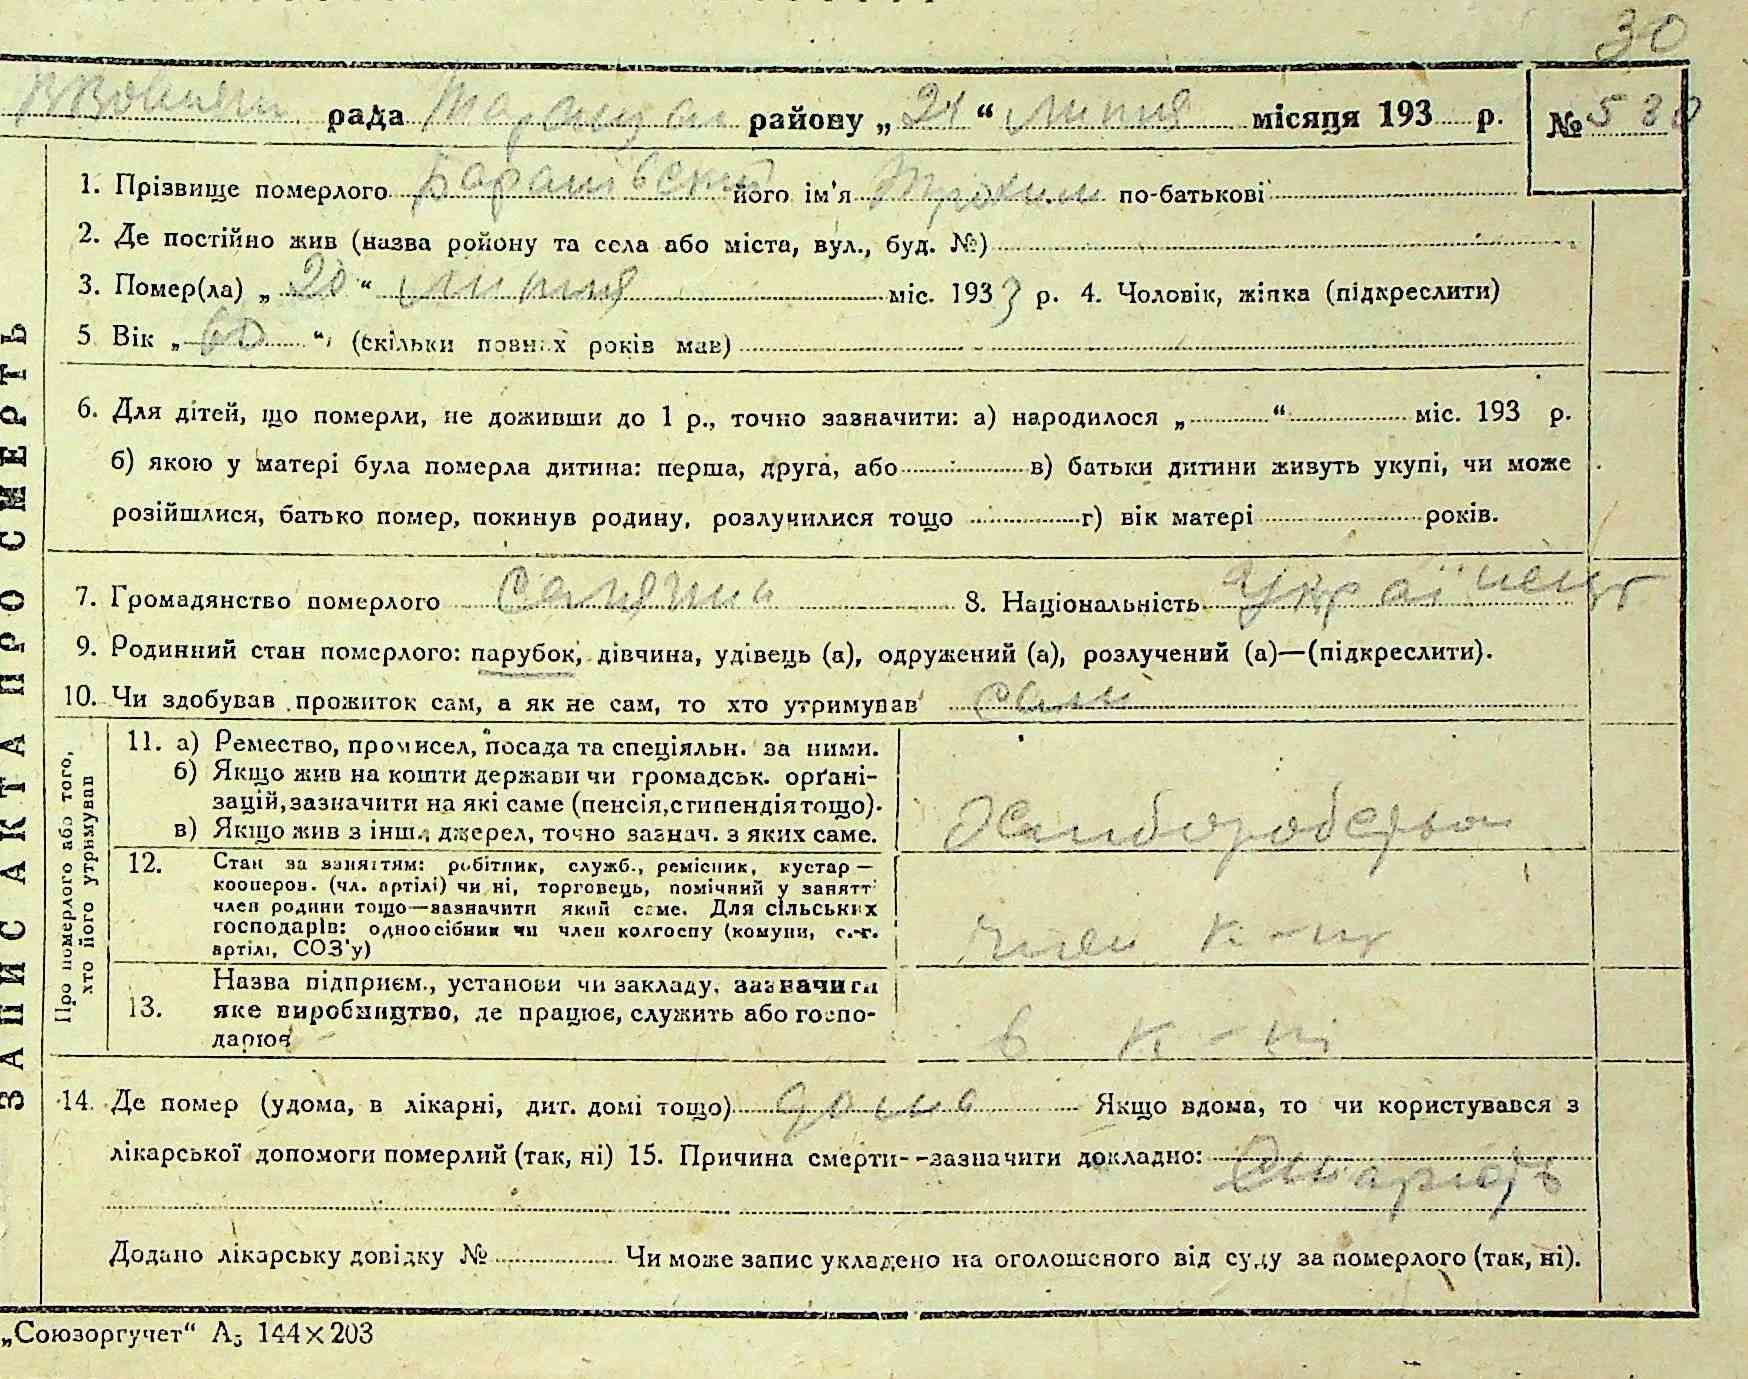 30
рада районy „ 24 “ липня місяця 193 р. № 530
1. Прізвище померлого Баранівський його ім'я Трохим по-батькові
2. Де постійно жив (назва ройону та села або міста, вул., буд. №)
3. Помер(ла) „ 20 “ липня міс. 1933 р. 4. Чоловік, жінка (підкреслити)
5 Вік „ 60 “, (скільки повних років мав)
6. Для дітей, що померли, не доживши до 1 р., точно зазначити: а) народилося „ “ міс. 193 р.
б) якою у матері була померла дитина: перша, друга, або в) батьки дитини живуть укупі, чи може
розійшлися, батько помер, покинув родину, розлучилися тощо г) вік матері років.
7. Громадянство померлого селянин 8. Національність Українець
9. Родинний стан померлого: парубок, дівчина, удівець (а), одружений (а), розлучений (а)—(підкреслити).
10. Чи здобував прожиток сам, а як не сам, то хто утримував сам
ЗАПИС АКТА ПРО СМЕРТЬ
Про померлого або того,
хто його утримував
11. а) Ремество, промисел, посада та спеціяльн. за ними.
б) Якщо жив на кошти держави чи громадськ. орґані-
зацій, зазначити на які саме (пенсія, стипендія тощо).
в) Якщо жив з інш. джерел, точно зазнач. з яких саме.
Хлібороство
12. Стан за заняттям: робітник, служб., ремісник, кустар—
кооперов. (чл. артілі) чи ні, торговець, помічний у занятт
член родини тощо—зазначити який саме. Для сільських
господарів: одноосібник чи член колгоспу (комуни, с.-г.
артілі, СОЗ'у)
член к-пу
13. Назва підприєм., установи чи закладу, зазначити
яке виробництво, де працює, служить або госпо-
дарює
в к-пі
14. Де помер (удома, в лікарні, дит. домі тощо) дома Якщо вдома, то чи користувався з
лікарської допомоги померлий (так, ні) 15. Причина смерти--зазначити докладно:
Додано лікарську довідку № Чи може запис укладено на оголошеного від суду за померлого (так, ні).
„Союзоргучет“ А5 144×203